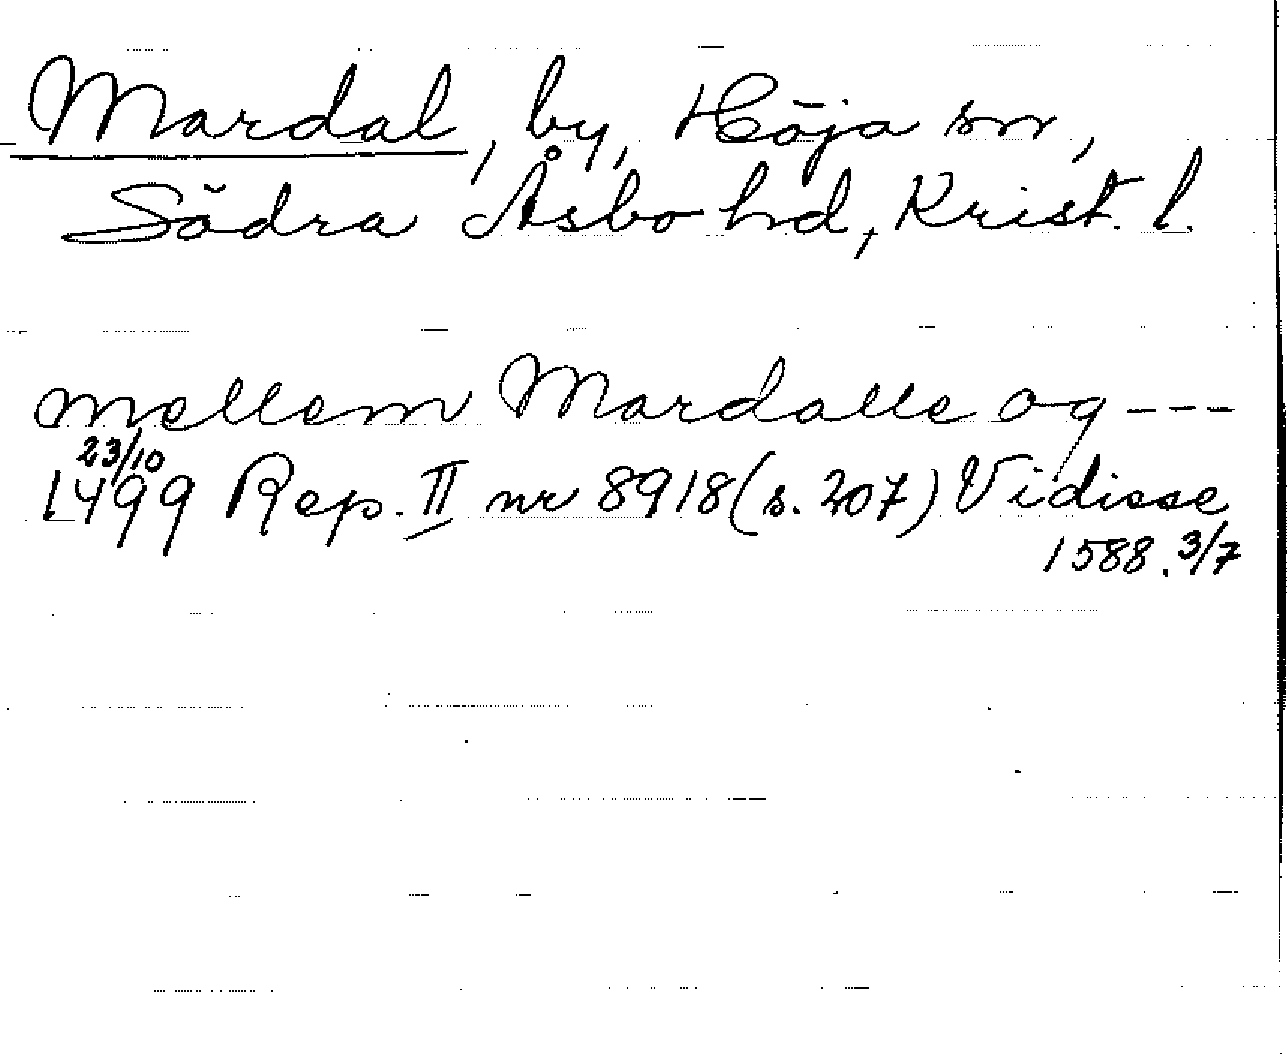 Mardal, by, Höja sn,
Södra Åsbo hd, Krist. l.
mellem Mardalle og ---
23/10
1499 Rep. II nr 8918 (s. 207) Vidisse
1588. 3/7